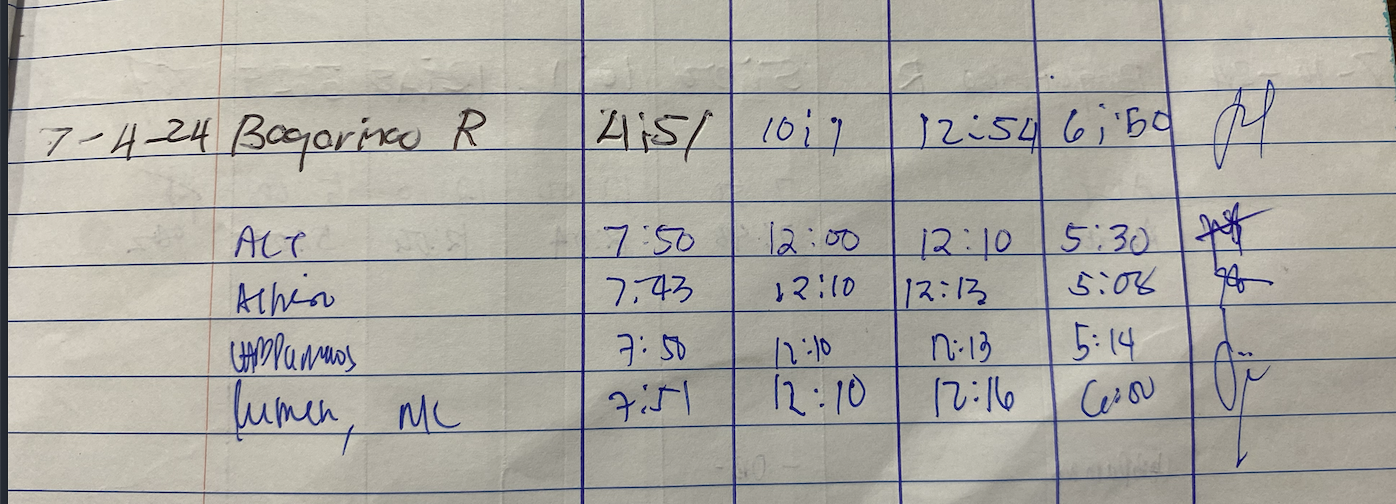 7-4-24 Bogarino R 4:51 10:1 12:54 6:50
ACT 7:50 12:00 12:10 5:30
7:43 12:10 12:13 5:08
7:50 12:10 12:13 5:14
Lumen, MC 7:51 12:10 12:16 6:00